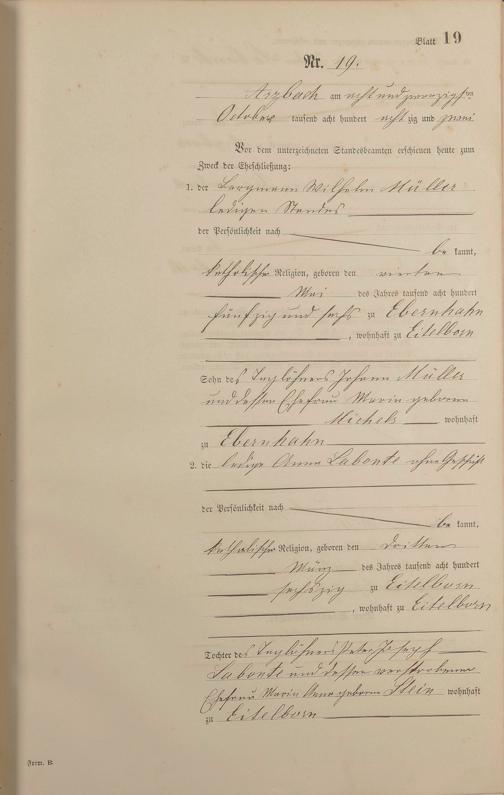 Blatt 19
Nr. 19.
Arzbach am acht und zwanzigsten
October tausend acht hundert achtzig und zwei
Vor dem unterzeichneten Standesbeamten erschienen heute zum
Zweck der Eheschließung:
1. der Bergmann Wilhelm Müller
ledigen Standes
der Persönlichkeit nach
be kannt,
katholischer Religion, geboren den vierten
Mai des Jahres tausend acht hundert
fünfzig und sechs zu Ebernhahn
, wohnhaft zu Eitelborn
Sohn des Taglöhners Johann Müller
und dessen Ehefrau Maria geborene
Michels wohnhaft
zu Ebernhahn
2. die ledige Anna Labonte ohne Geschäft
der Persönlichkeit nach
be kannt,
katholischer Religion, geboren den dritten
März des Jahres tausend acht hundert
sechszig zu Eitelborn
, wohnhaft zu Eitelborn
Tochter des Taglöhners Peter Joseph
Labonte und dessen verstorbene
Ehefrau Maria Anna geborene Stein wohnhaft
zu Eitelborn
Form. B.